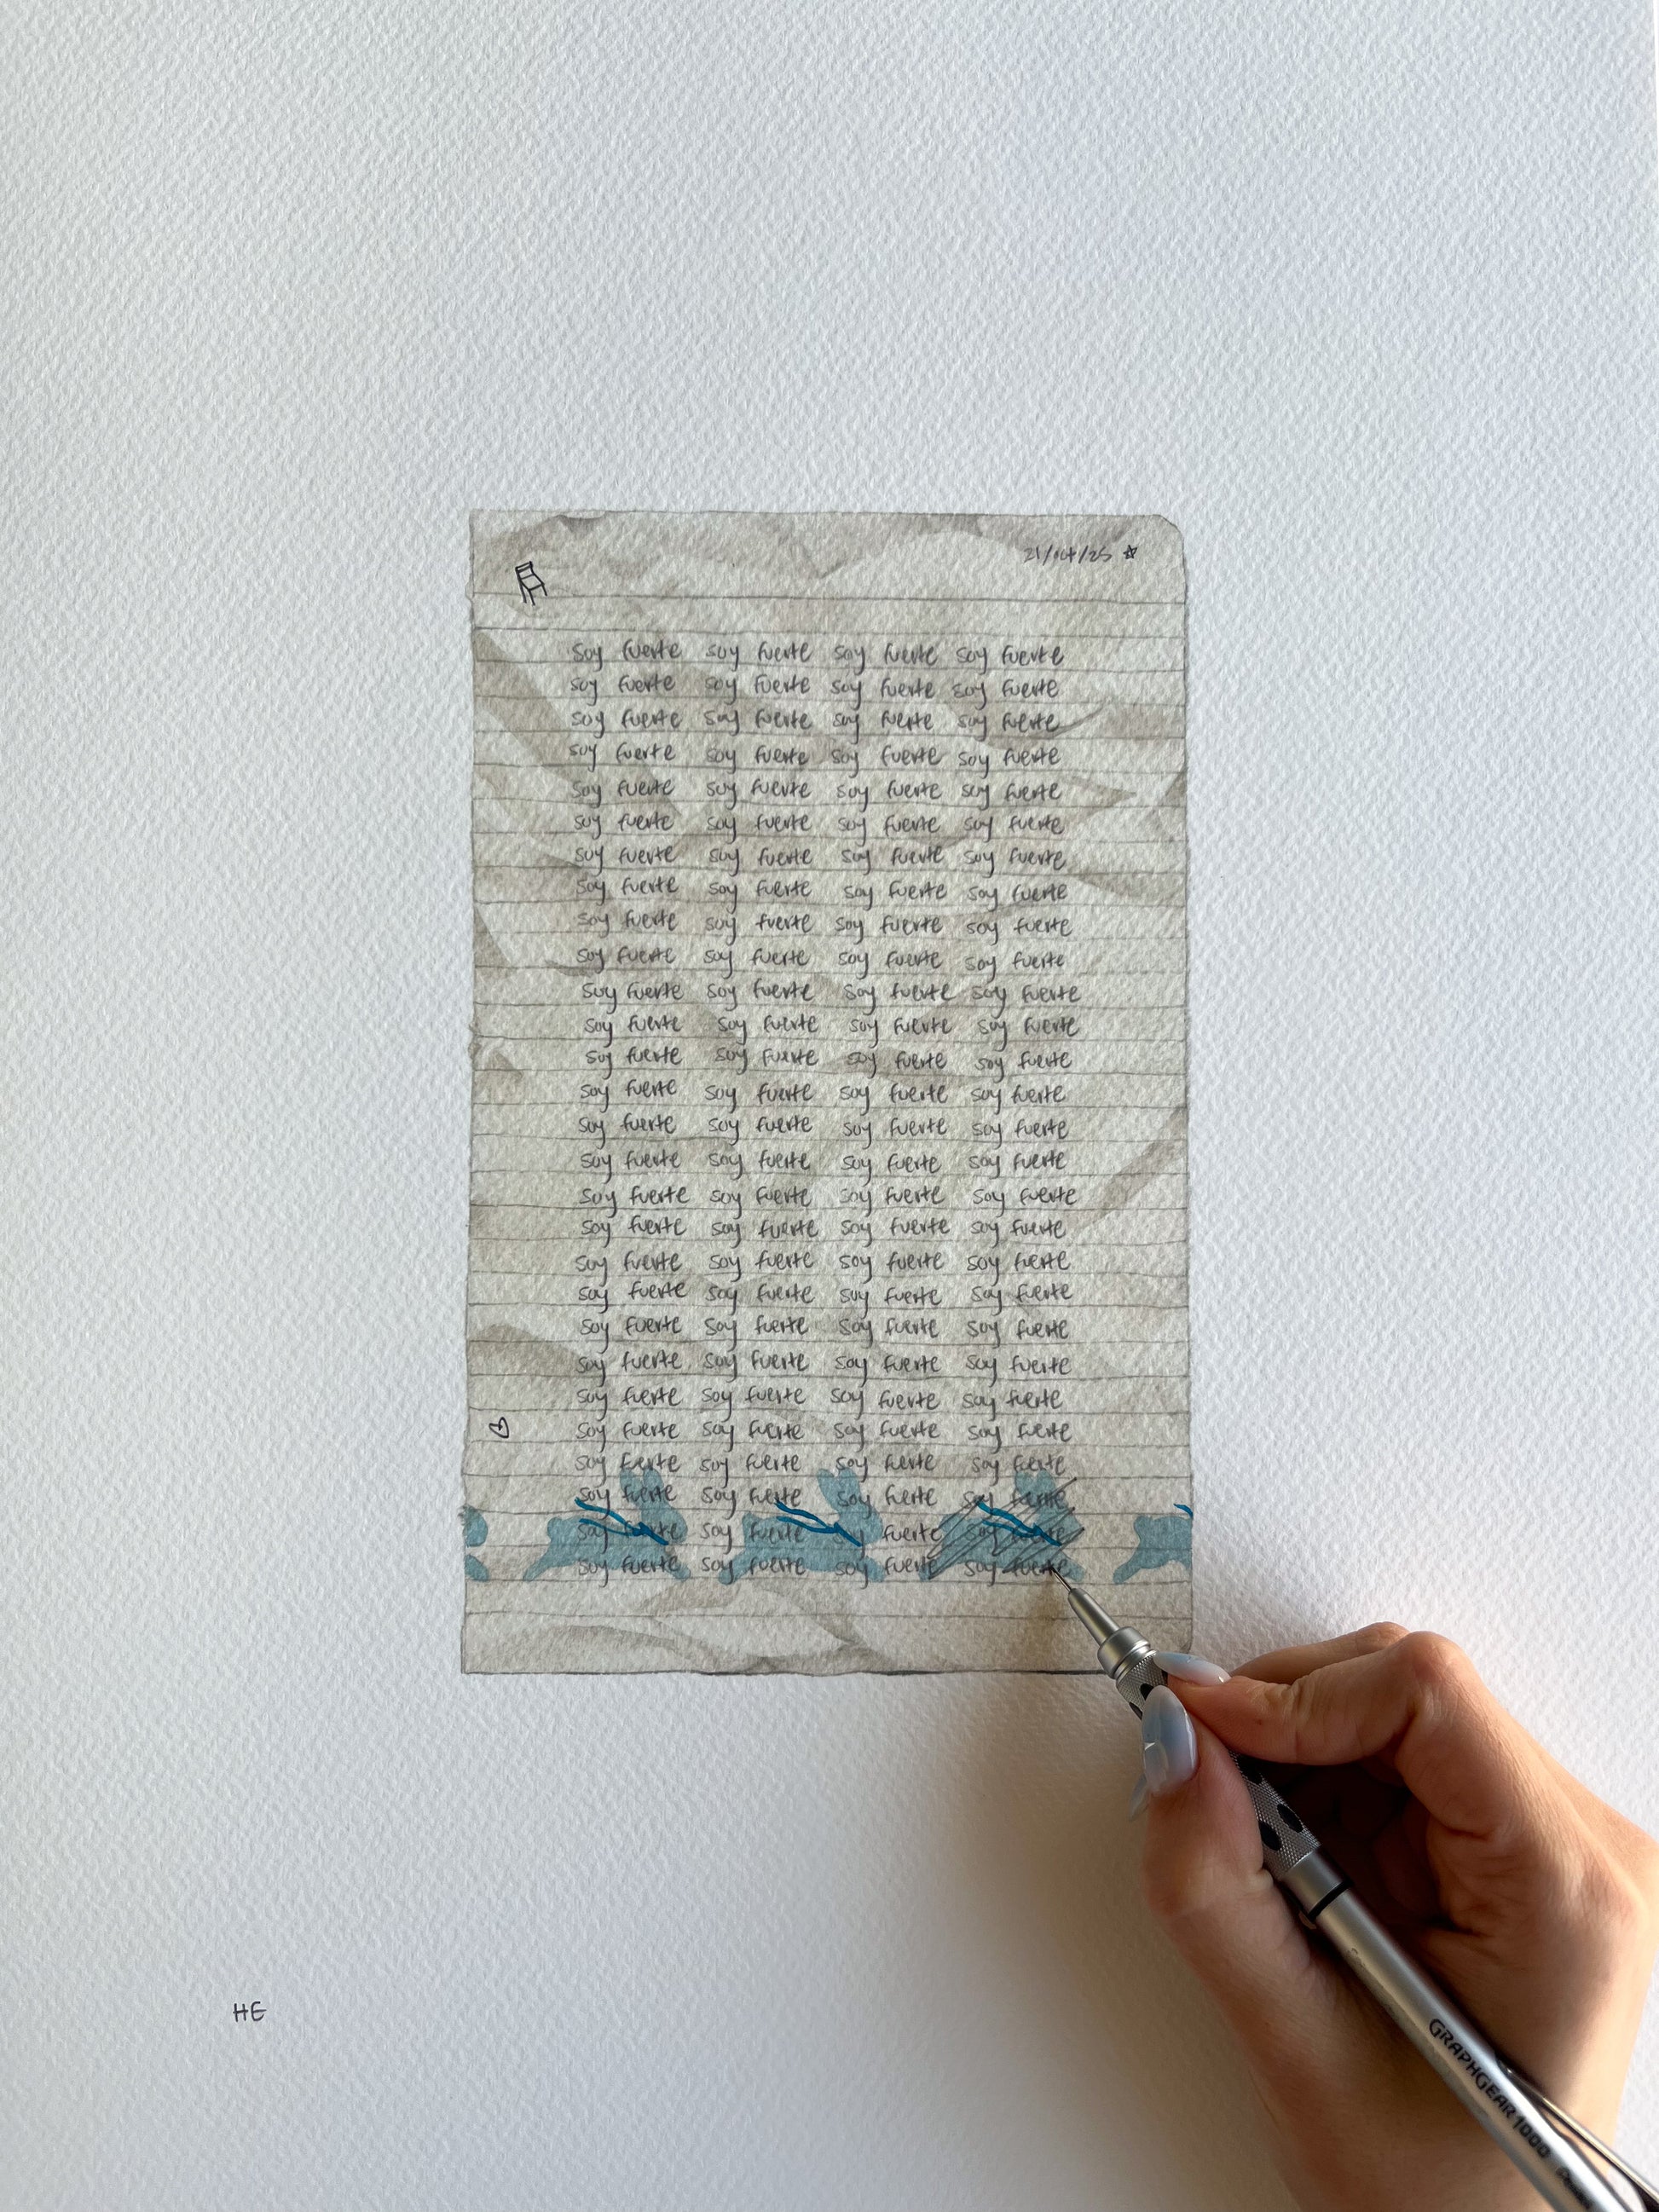 21/oct/25
soy fuerte soy fuerte soy fuerte soy fuerte
soy fuerte soy fuerte soy fuerte soy fuerte
soy fuerte soy fuerte soy fuerte soy fuerte
soy fuerte soy fuerte soy fuerte soy fuerte
soy fuerte soy fuerte soy fuerte soy fuerte
soy fuerte soy fuerte soy fuerte soy fuerte
soy fuerte soy fuerte soy fuerte soy fuerte
soy fuerte soy fuerte soy fuerte soy fuerte
soy fuerte soy fuerte soy fuerte soy fuerte
soy fuerte soy fuerte soy fuerte soy fuerte
soy fuerte soy fuerte soy fuerte soy fuerte
soy fuerte soy fuerte soy fuerte soy fuerte
soy fuerte soy fuerte soy fuerte soy fuerte
soy fuerte soy fuerte soy fuerte soy fuerte
soy fuerte soy fuerte soy fuerte soy fuerte
soy fuerte soy fuerte soy fuerte soy fuerte
soy fuerte soy fuerte soy fuerte soy fuerte
soy fuerte soy fuerte soy fuerte soy fuerte
soy fuerte soy fuerte soy fuerte soy fuerte
soy fuerte soy fuerte soy fuerte soy fuerte
soy fuerte soy fuerte soy fuerte soy fuerte
soy fuerte soy fuerte soy fuerte soy fuerte
soy fuerte soy fuerte soy fuerte soy fuerte
soy fuerte soy fuerte soy fuerte soy fuerte
soy fuerte soy fuerte soy fuerte soy fuerte
soy fuerte soy fuerte soy fuerte soy fuerte
soy fuerte soy fuerte soy fuerte soy fuerte
soy fuerte soy fuerte soy fuerte soy fuerte
HE
GRAPHGEAR 1000